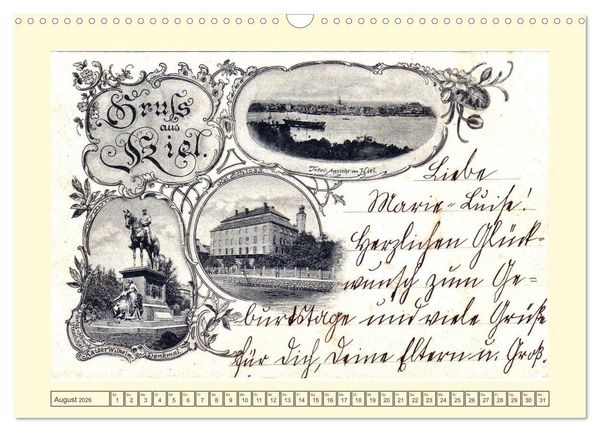 Gruss
aus
Kiel.
Total-Ansicht von Kiel.
Kgl. Schloss.
Kaiser Wilhelm-Denkmal.
Liebe
Marie-Luise!
Herzlichen Glück-
wunsch zum Ge-
burtstage und viele Grüße
für Dich, Deine Eltern u. Groß.
August 2026
Sa So Mo Di Mi Do Fr Sa So Mo Di Mi Do Fr Sa So Mo Di Mi Do Fr Sa So Mo Di Mi Do Fr Sa So Mo
1 2 3 4 5 6 7 8 9 10 11 12 13 14 15 16 17 18 19 20 21 22 23 24 25 26 27 28 29 30 31